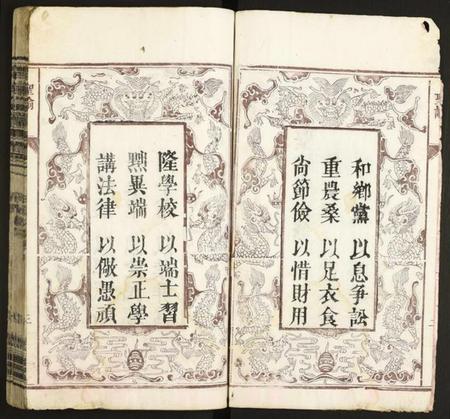 和鄉黨 以息爭訟
重農桑 以足衣食
尚節儉 以惜財用
隆學校 以端士習
黜異端 以崇正學
講法律 以儆愚頑
聖諭